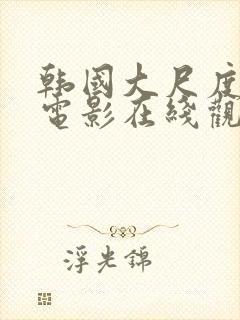 韩國大尺度
電影在綫觀
浮光錦